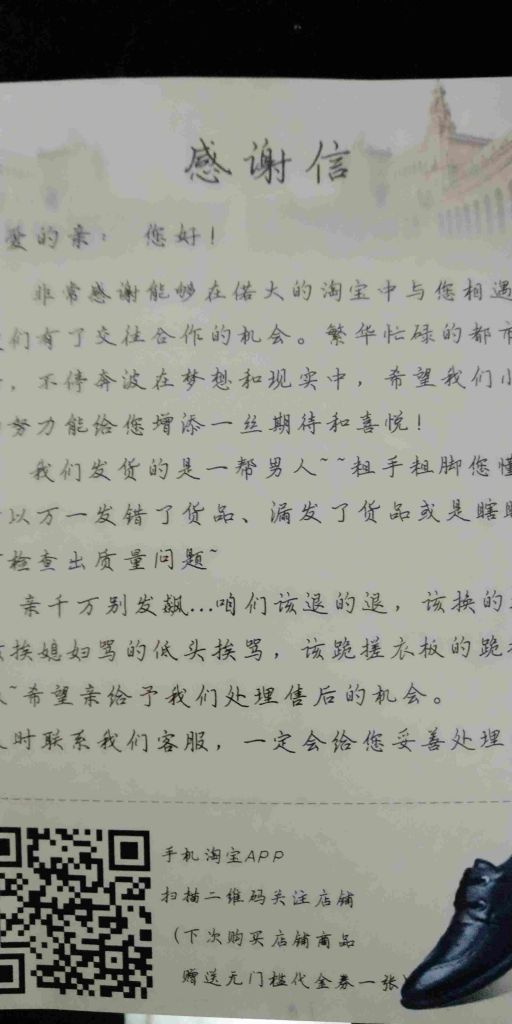 感谢信
爱的亲： 您好！
非常感谢能够在偌大的淘宝中与您相遇
们有了交往合作的机会。繁华忙碌的都市
，不停奔波在梦想和现实中，希望我们小
努力能给您增添一丝期待和喜悦！
我们发货的是一帮男人~~粗手粗脚您懂
以万一发错了货品、漏发了货品或是瞎
检查出质量问题~
亲千万别发飙...咱们该退的退，该换的
挨媳妇骂的低头挨骂，该跪搓衣板的跪
~希望亲给予我们处理售后的机会。
时联系我们客服，一定会给您妥善处理
手机淘宝APP
扫描二维码关注店铺
（下次购买店铺商品
赠送无门槛代金券一张）